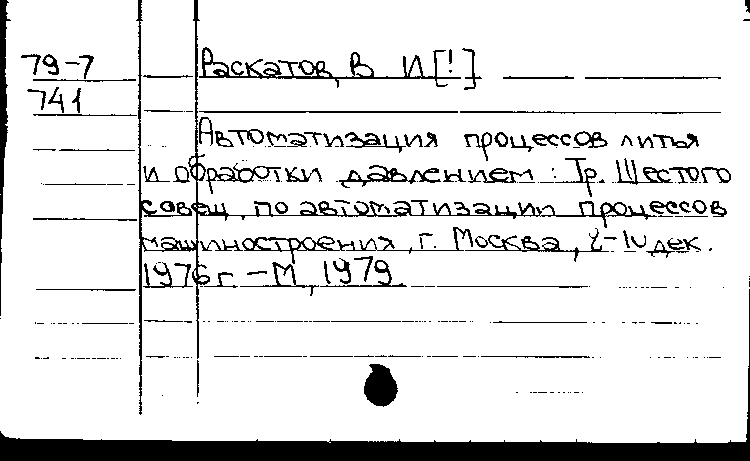 79-7 Раскатов, В И [!]
741
Автоматизация процессов литья
и обработки давлением: Тр. Шестого
совещ. по автоматизации процессов
машиностроения, г. Москва, 2-10 дек.
1976 г. - М, 1979.